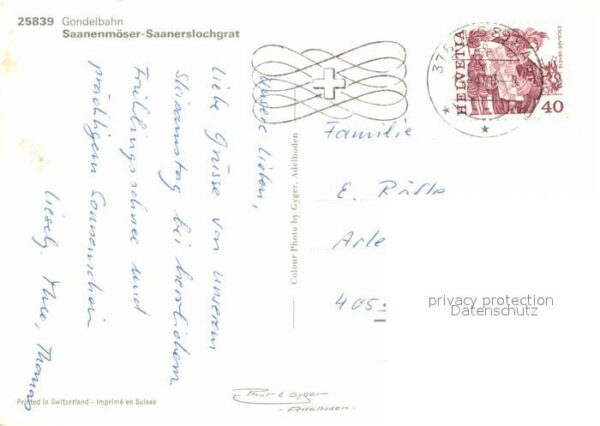 25839 Gondelbahn
Saanenmöser-Saanerslochgrat
Unsere Lieben,
Liebe Grüsse von unserem
Skisamstag bei herrlichem
Frühlingsschnee und
prächtigem Sonnenschein
Lieselj. Theo, Thomas
Colour Photo by Gyger, Adelboden
HELVETIA
40
Familie
E.
405
privacy protection
Datenschutz
Printed in Switzerland - Imprimé en Suisse
Gyger
Adelboden.